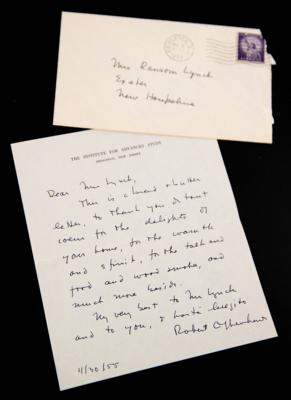 Mrs Ransom Lynch
Exeter
New Hampshire
THE INSTITUTE FOR ADVANCED STUDY
PRINCETON, NEW JERSEY
Dear Mrs Lynch,
This is a bread & butter
letter, to thank you & your
for the delights of
your home, for the warmth
and spirit, for the talk and
food and wood smoke, and
much more besides.
My very best to Mr Lynch
and to you, &
Robert Oppenheimer
11/30/55